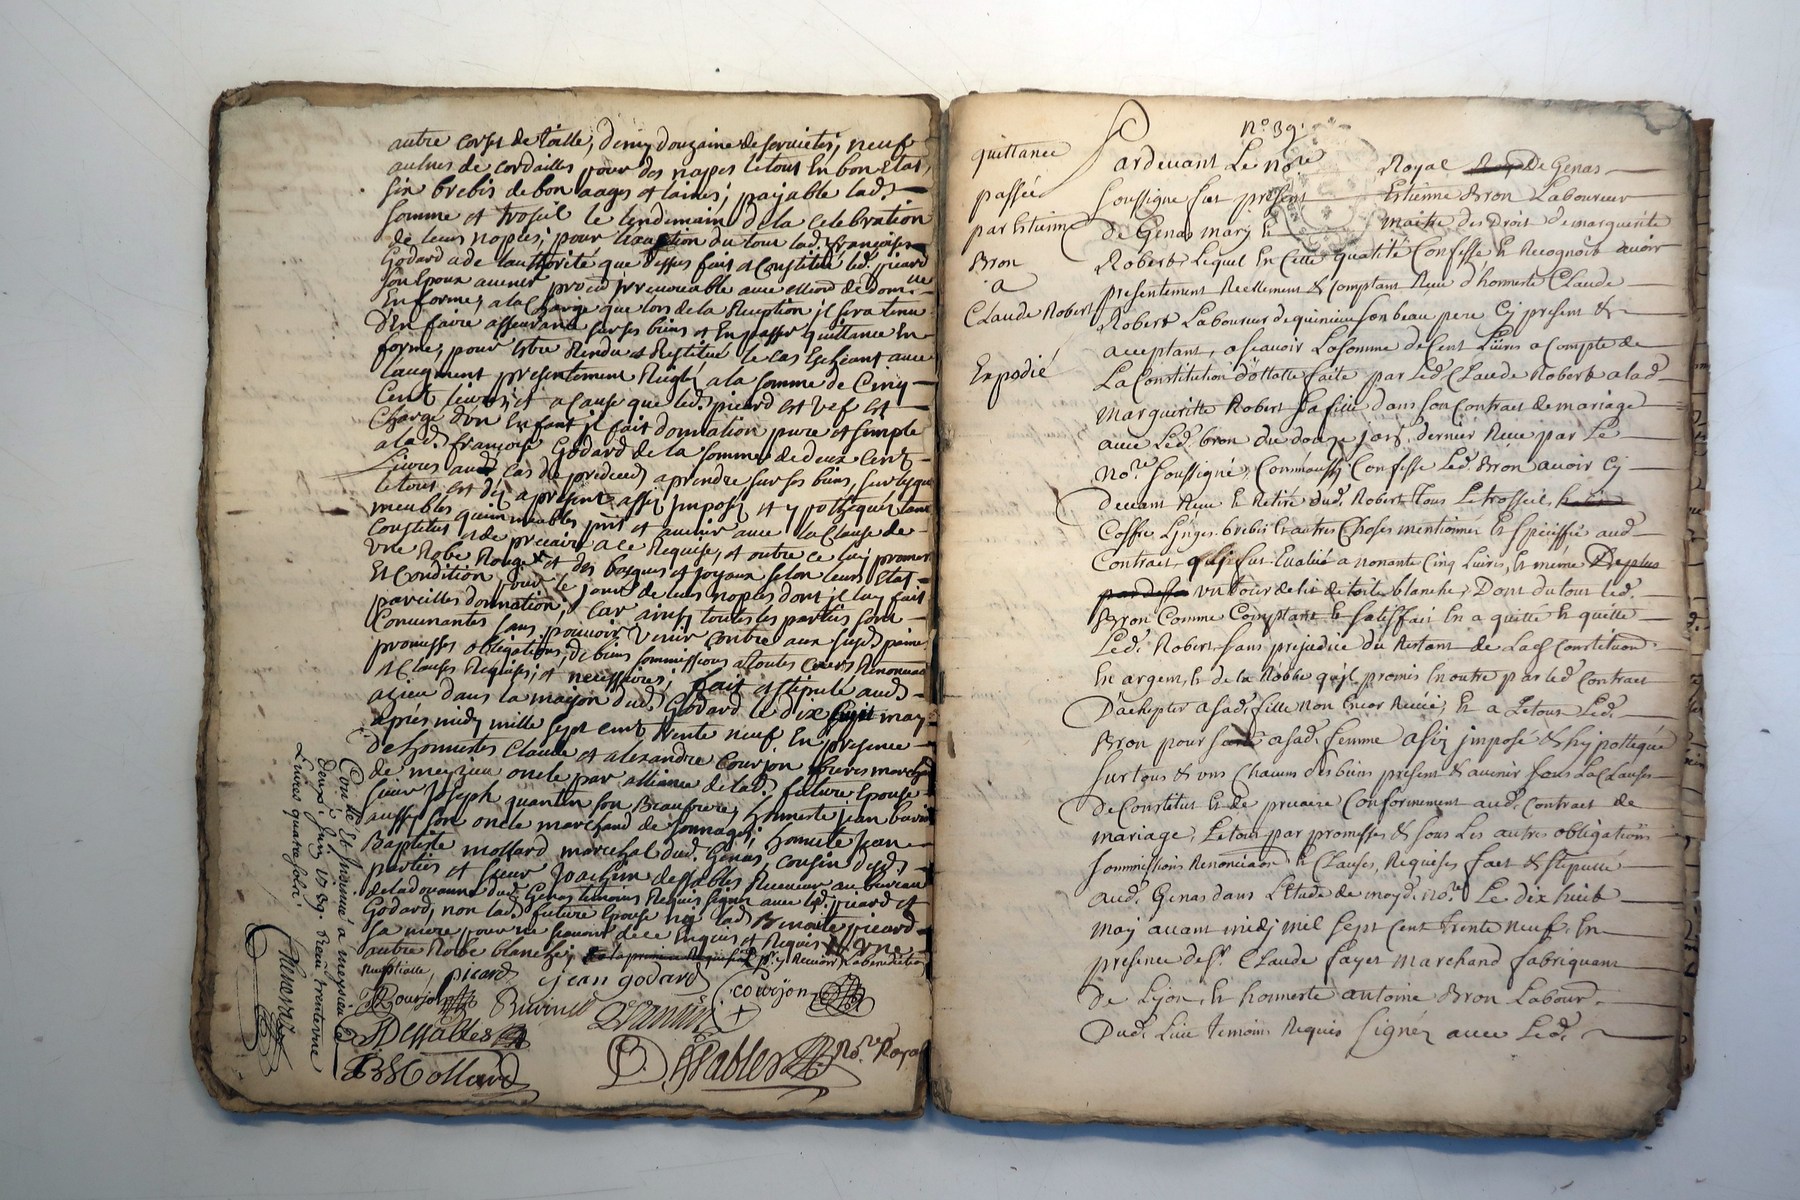 autre corps de toille, demy douzaine de serviettes, neuf
aulnes de cordailles pour des nappes le tout En bon Etat,
six brebis de bon aages et laines; payable lad.
somme et trosseil le lendemain de la celebration
de leurs nopces; pour l'exaction du tout lad. françoise
Godard a de l'authorité que dessus fait et Constitué led. picard
son Epoux avenir procur irrevocable avec Election de domi
En forme, a la Charge que lors de la Reception il sera tenu
d'En faire asseurance sur ses biens et En passer quittance En
forme, pour Estre Rendu et Restitué le cas Escheant avec
l'augment presentement Reiglé a la somme de Cinq
Cent livres, et a Cause que led. picard est vef est
Chargé d'un Enfant il fait donnation pure et simple
a lad. françoise Godard de la somme de deux Cent
Livres aud. cas de predeced a prendre sur ses biens, sur lesquels
le tout est dez apresent assis Imposé et ypothequé tant
meubles qu'immeubles pnts et avenir avec la Clause de
Constitut et de precaire a ce Requise, et outre ce luy promet
une Robe Rouge et des bagues et joyaux selon leur Etat
Et Condition, pour le jour de leurs nopces dont il luy fait
pareilles donnation, Car ainsy toutes les parties sont
Convenantes sans pouvoir venir Contre aux susd. peine
promesses obligations, de biens sommissions a toutes Cours Renonciaon
et Clauses Requises, et necessaires; fait et stipulé aud.
azieu dans la maison dud. Godard le dix may
après midy mille sept cent trente neuf En presence
de honnestes Claude et alexandre Courjon freres marchds
de meyzieu oncle par alliance de lad. future Epouse
sieur Joseph quantin son Beaufrere, honneste jean
aussy son oncle marchand de honneste Jean
Baptiste mollard marechal dud. Genas, cousin desd.
parties et sieur Joachim dessables Receveur au bureau
de la douanne dud. Genas temoins Requis signez avec led. picard et
Godard, non lad. future Epouse ny lad. Benoite picard
sa mere pour ne sçavoir de ce Enquis et Requis et une
autre Robe blanche
nuptialle picard jean godard Courjon
Bourjon quantin
Dessables
B Mollard Dessables No.re Royal
Con.lé Et Insinué a meyzieu le
deux Juin 1739. Receu trente une
Livres quatre sols.
N.o 39.
quittance
passée
par Estienne
Bron
a
Claude Robert
Expedié
Pardevant Le No.re Royal De Genas
soussigné fut present Estienne Bron Laboureur
De Genas mary et maitre des Droit de marguerite
Robert, Lequel En Cette qualité Confesse Et Recognoit avoir
presentement Reellement & Comptant Receu d'honneste Claude
Robert Laboureur de quinieu son beau pere Cy present &
acceptant, a scavoir La somme de Cent Livres a Compte de
La Constitution dottalle faite par Led. Claude Robert a lad.
Margueritte Robert Sa fille dans son Contract de mariage
avec Led. bron du douze janv. dernier Receu par Le
No.re soussigné, Comm'aussy Confesse Led. Bron avoir Cy
devant Receu Et Retiré dud. Robert Tous Le trosseil,
Coffre, Linges, brebis Et autres Choses mentionnez Et speciffié aud.
Contract, qui fut Evalué a nonante Cinq Livres, Et même De plus
un tour de lit de toile blanche; Dont du tout led.
Bron Comme Comptant Et satisffait En a quitté Et quitte
Led. Robert sans prejudice du Restant de Lad. Constitu
En argent, Et de la Robbe qu'il promis En outre par led. Contract
D'achepter a sad. fille non Encor Receüe, Et a Letout Led.
Bron pour a sad. femme assis Imposé & hypottequé
sur tous & uns Chacuns ses biens present & avenir sous La Clauses
De Constitut Et de precaire Conformement aud. Contract de
mariage; Letout par promesses & sous Les autres obligations
Sommissions Renonciaon & Clauses, Requises fait & stipullé
aud. Genas dans L'Etude de moyd. No.re Le dix huit
May avant midy mil sept Cent Trente neuf. En
presence de s.r Claude fayet Marchand fabriquant
De Lyon, Et honneste antoine Bron Labour.
Dud. Lieu Temoins Requis Signéz avec Led.